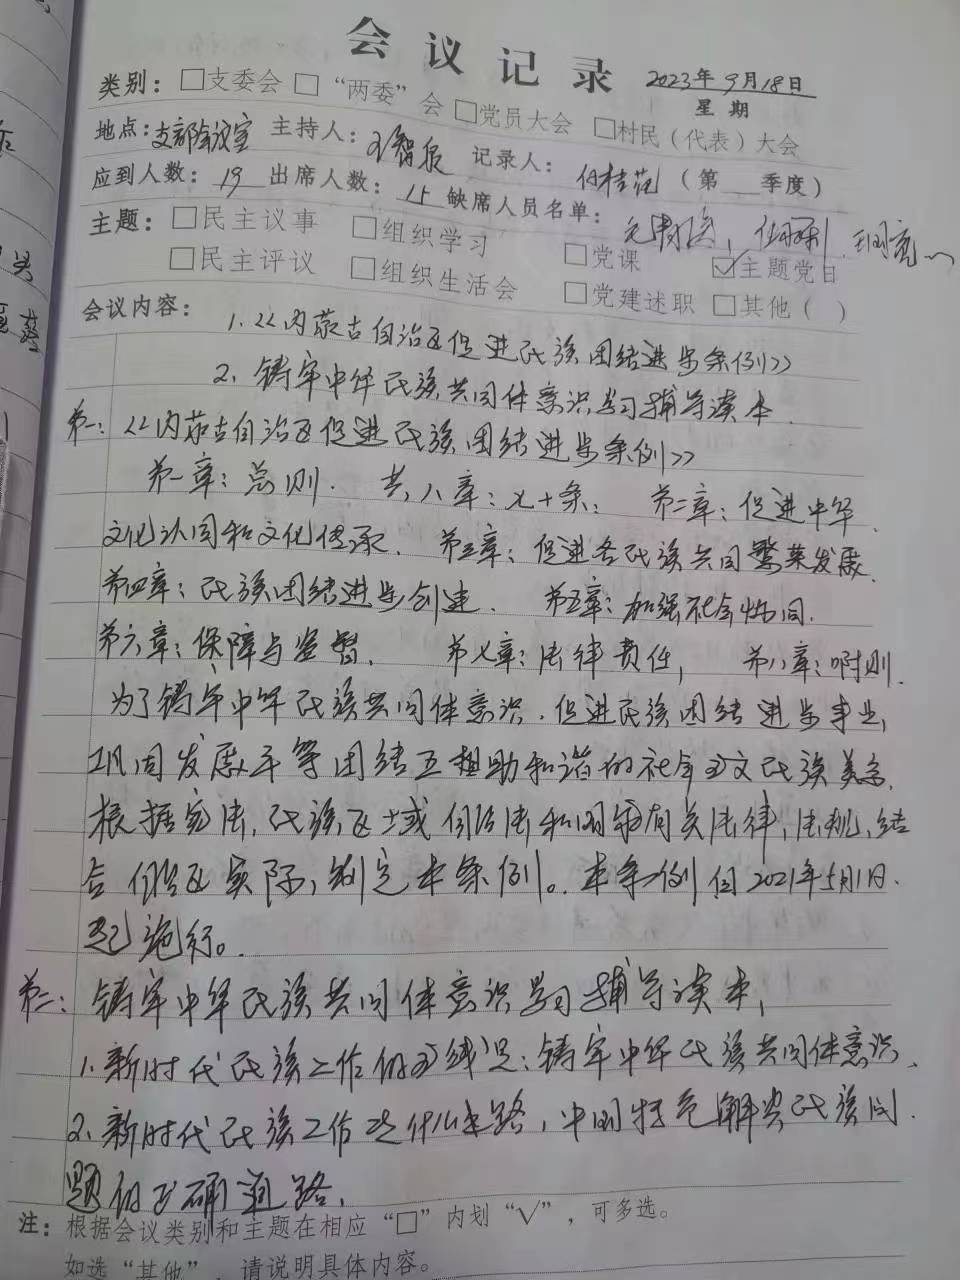 会议记录
2023年9月18日
星期
类别：□支委会 □“两委”会 □党员大会 □村民（代表）大会
地点：支部会议室 主持人： 记录人： 桂花 （第 季度）
应到人数：19 出席人数：15 缺席人员名单：
主题：□民主议事 □组织学习 □党课 ☑主题党日
□民主评议 □组织生活会 □党建述职 □其他（ ）
会议内容：1.《内蒙古自治区促进民族团结进步条例》
2、铸牢中华民族共同体意识学习辅导读本
第一：《内蒙古自治区促进民族团结进步条例》
第一章：总则. 共八章：七十条： 第二章：促进中华
文化认同和文化传承. 第三章：促进各民族共同繁荣发展.
第四章：民族团结进步创建. 第五章：加强社会协同.
第六章：保障与监督. 第七章：法律责任, 第八章：附则.
为了铸牢中华民族共同体意识.促进民族团结进步事业,
巩固发展平等团结互助和谐的社会主义民族关系.
根据宪法.民族区域自治法和国家有关法律,法规,结
合自治区实际,制定本条例。本条例自2021年5月1日.
起施行。
第二：铸牢中华民族共同体意识学习辅导读本,
1.新时代民族工作的主线是：铸牢中华民族共同体意识.
2、新时代民族工作走什么道路,中国特色解决民族问.
题的正确道路.
注：根据会议类别和主题在相应“□”内划“√”，可多选。
如选“其他”，请说明具体内容。